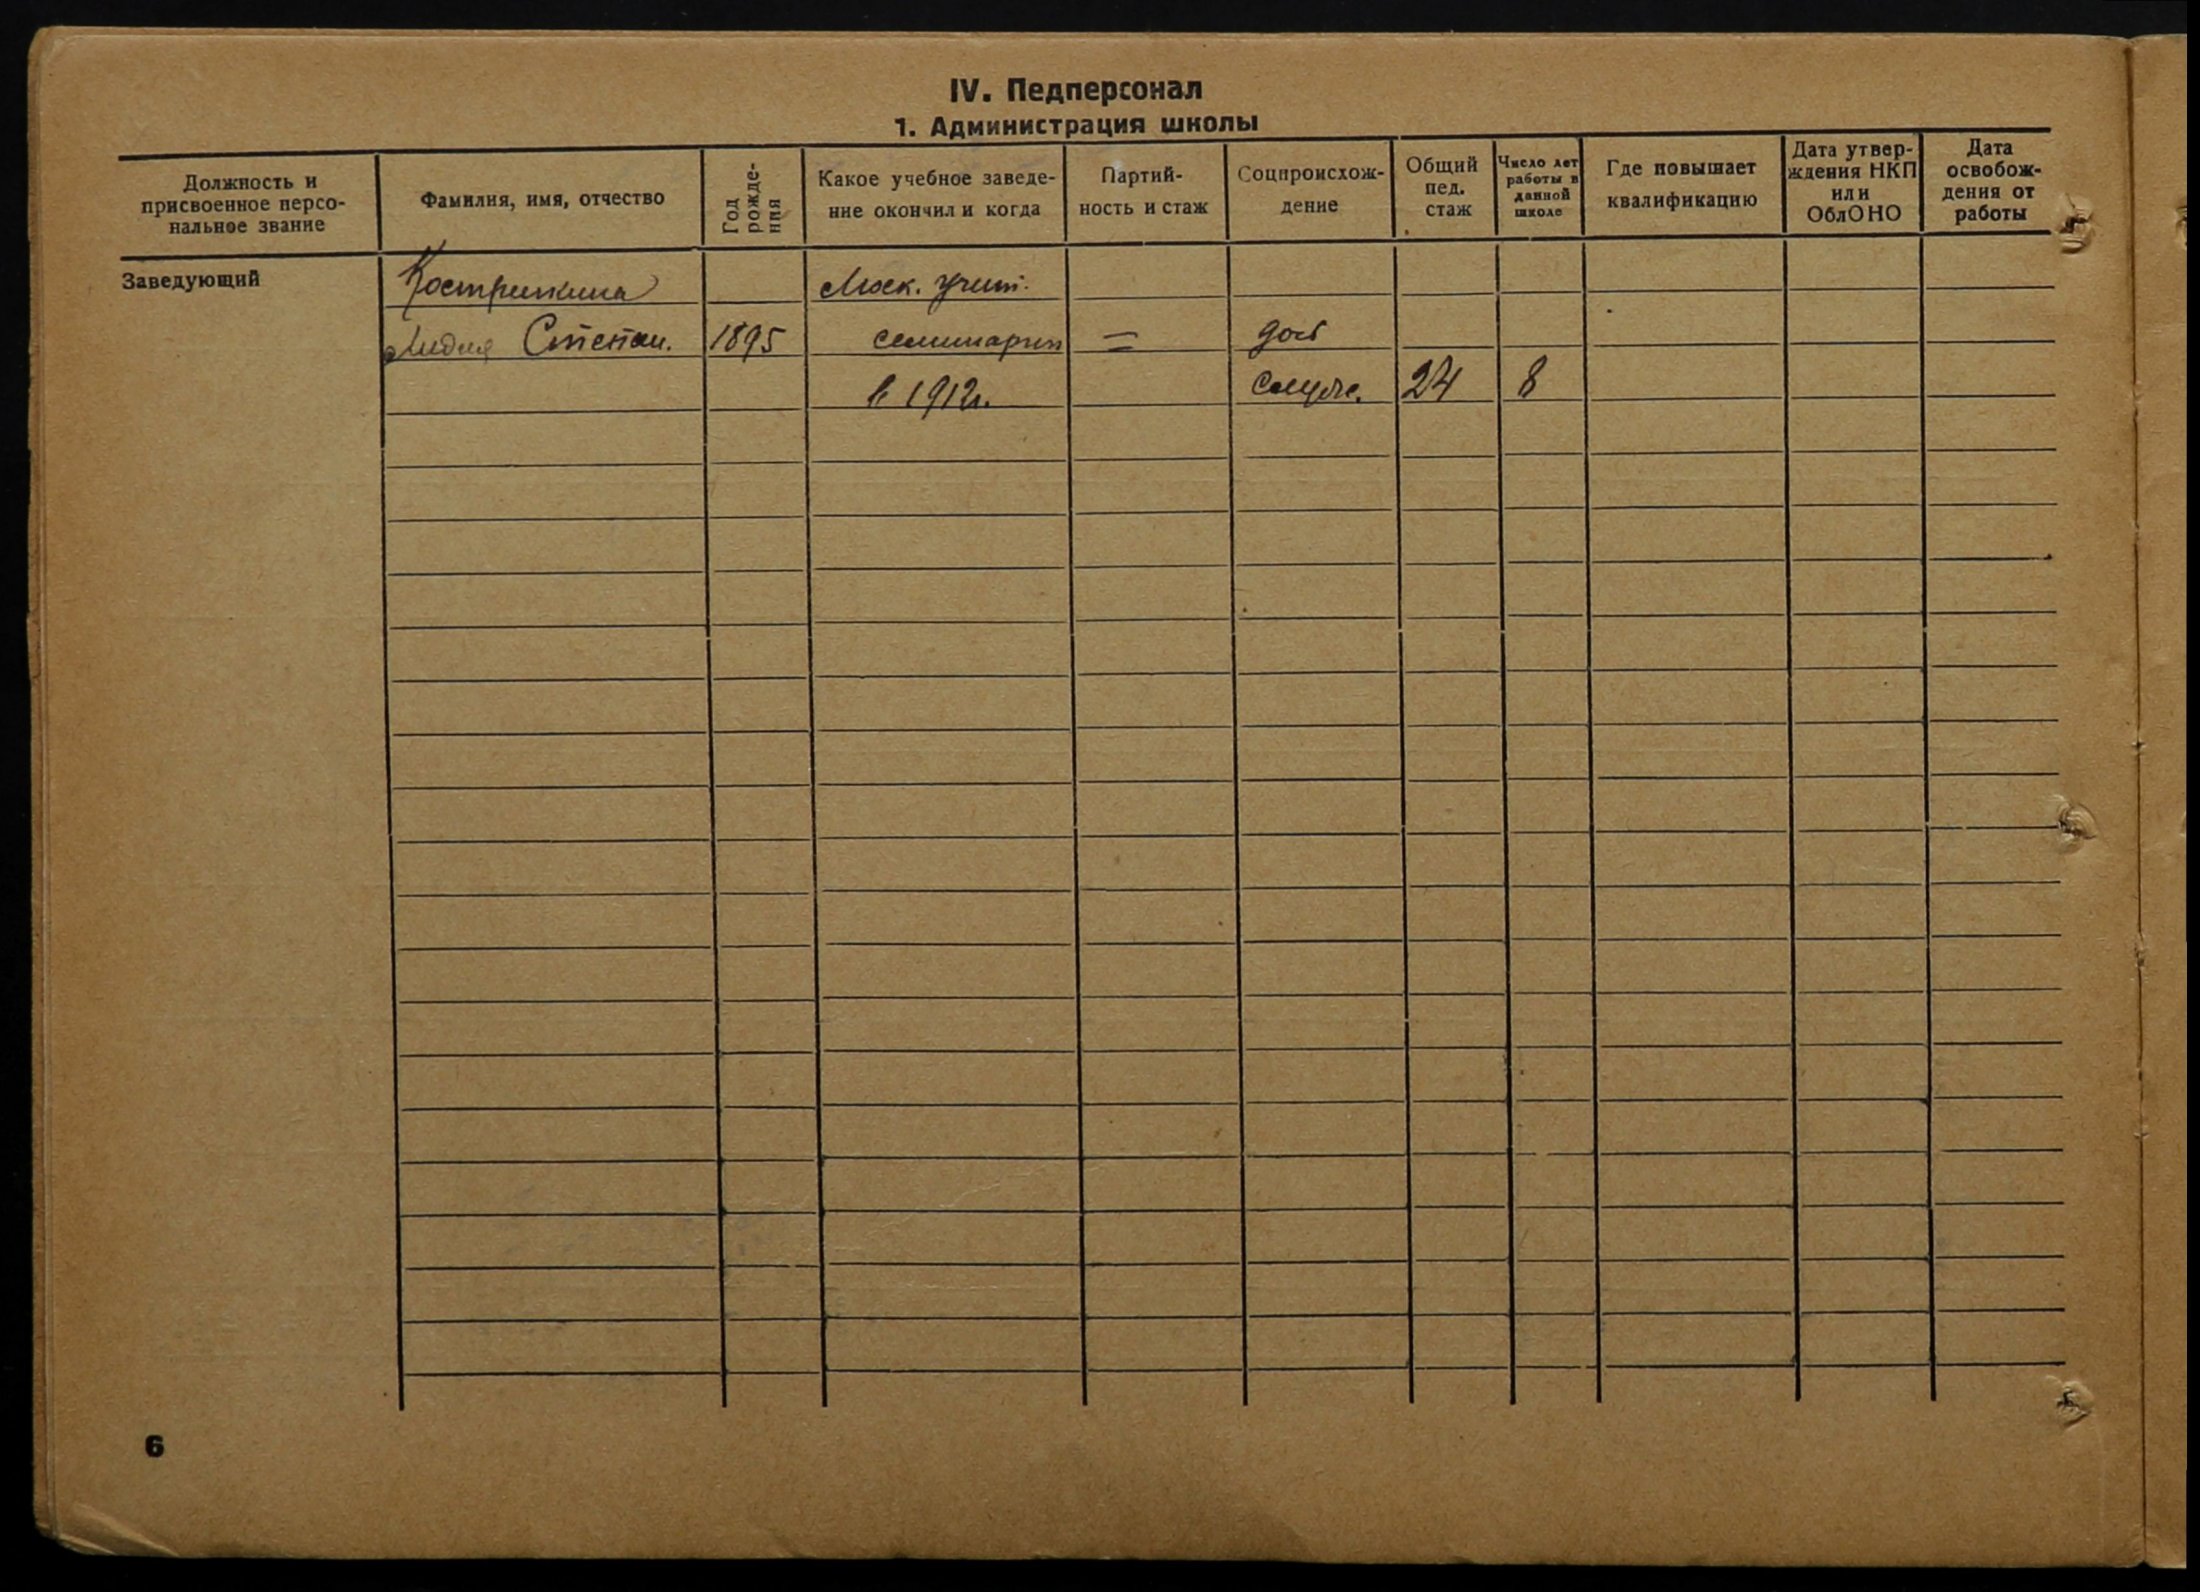 IV. Педперсонал
1. Администрация школы
Должность и
присвоенное персо-
нальное звание
Фамилия, имя, отчество
Год
рожде-
ния
Какое учебное заведе-
ние окончил и когда
Партий-
ность и стаж
Соцпроисхож-
дение
Общий
пед.
стаж
Число лет
работы в
данной
школе
Где повышает
квалификацию
Дата утвер-
ждения НКП
или
ОблОНО
Дата
освобож-
дения от
работы
Заведующий
Кострикина
Лидия Степан.
1895
Моск. учит.
семинарии
в 1912г.
=
служ.
24
8
6